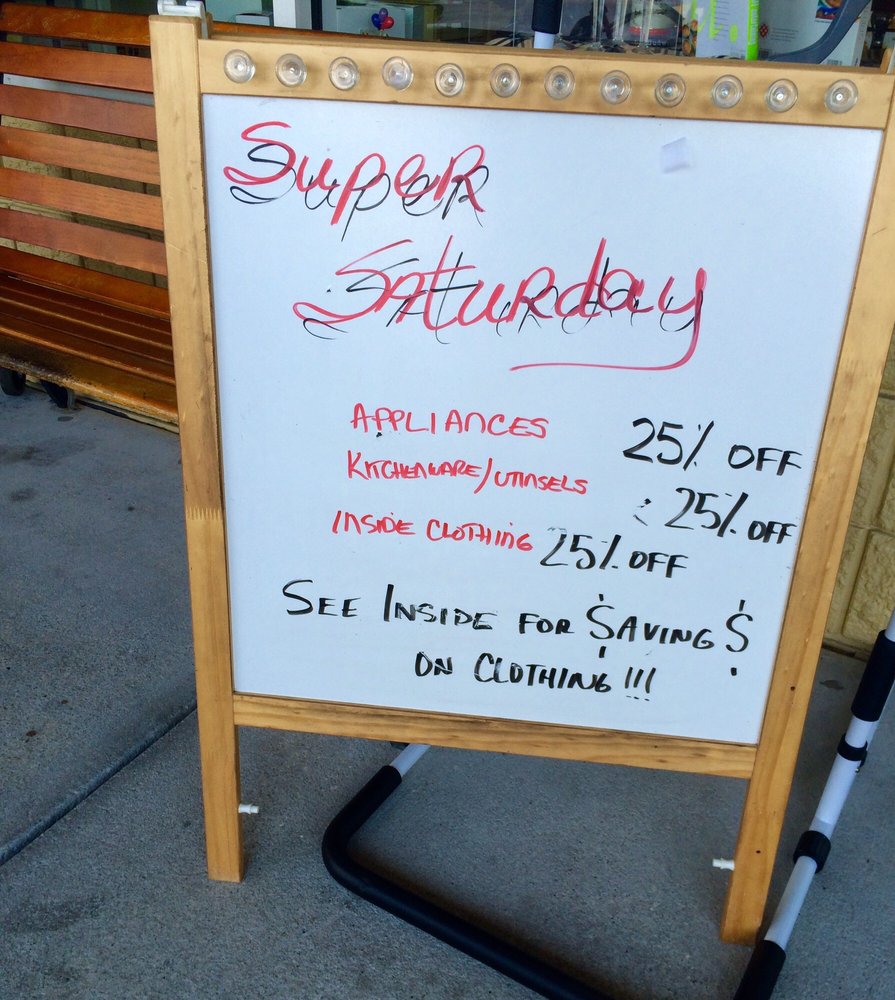 Super
Saturday
APPLIANCES 25% OFF
KITCHENWARE/UTINSELS 25% OFF
INSIDE CLOTHING 25% OFF
SEE INSIDE FOR $AVING$
ON CLOTHING!!!